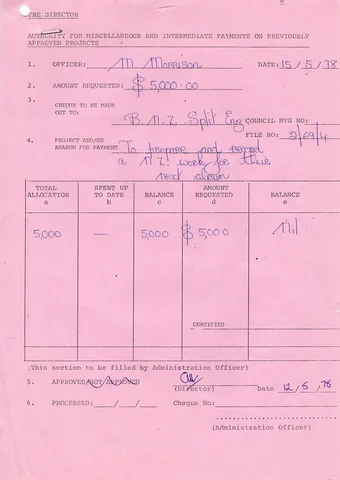 THE DIRECTOR
AUTHORITY FOR MISCELLANEOUS AND INTERMEDIATE PAYMENTS ON PREVIOUSLY
APPROVED PROJECTS
1. OFFICER: M. Morrison DATE: 15/5/78
2. AMOUNT REQUESTED: $ 5,000.00
3. CHEQUE TO BE MADE
OUT TO: B.N.Z. Split Enz COUNCIL MTG NO:
FILE NO: 2/69/4
4. PROJECT AND/OR
REASON FOR PAYMENT To prepare and record
a N.Z. work for their
next album
TOTAL ALLOCATION a SPENT UP TO DATE b BALANCE c AMOUNT REQUESTED d BALANCE e
5,000 — 5,000 $ 5,000 Nil
CERTIFIED
(This section to be filled by Administration Officer)
5. APPROVED/NOT APPROVED (Director) Date 12/5/78
6. PROCESSED: / / Cheque No:
(Administration Officer)